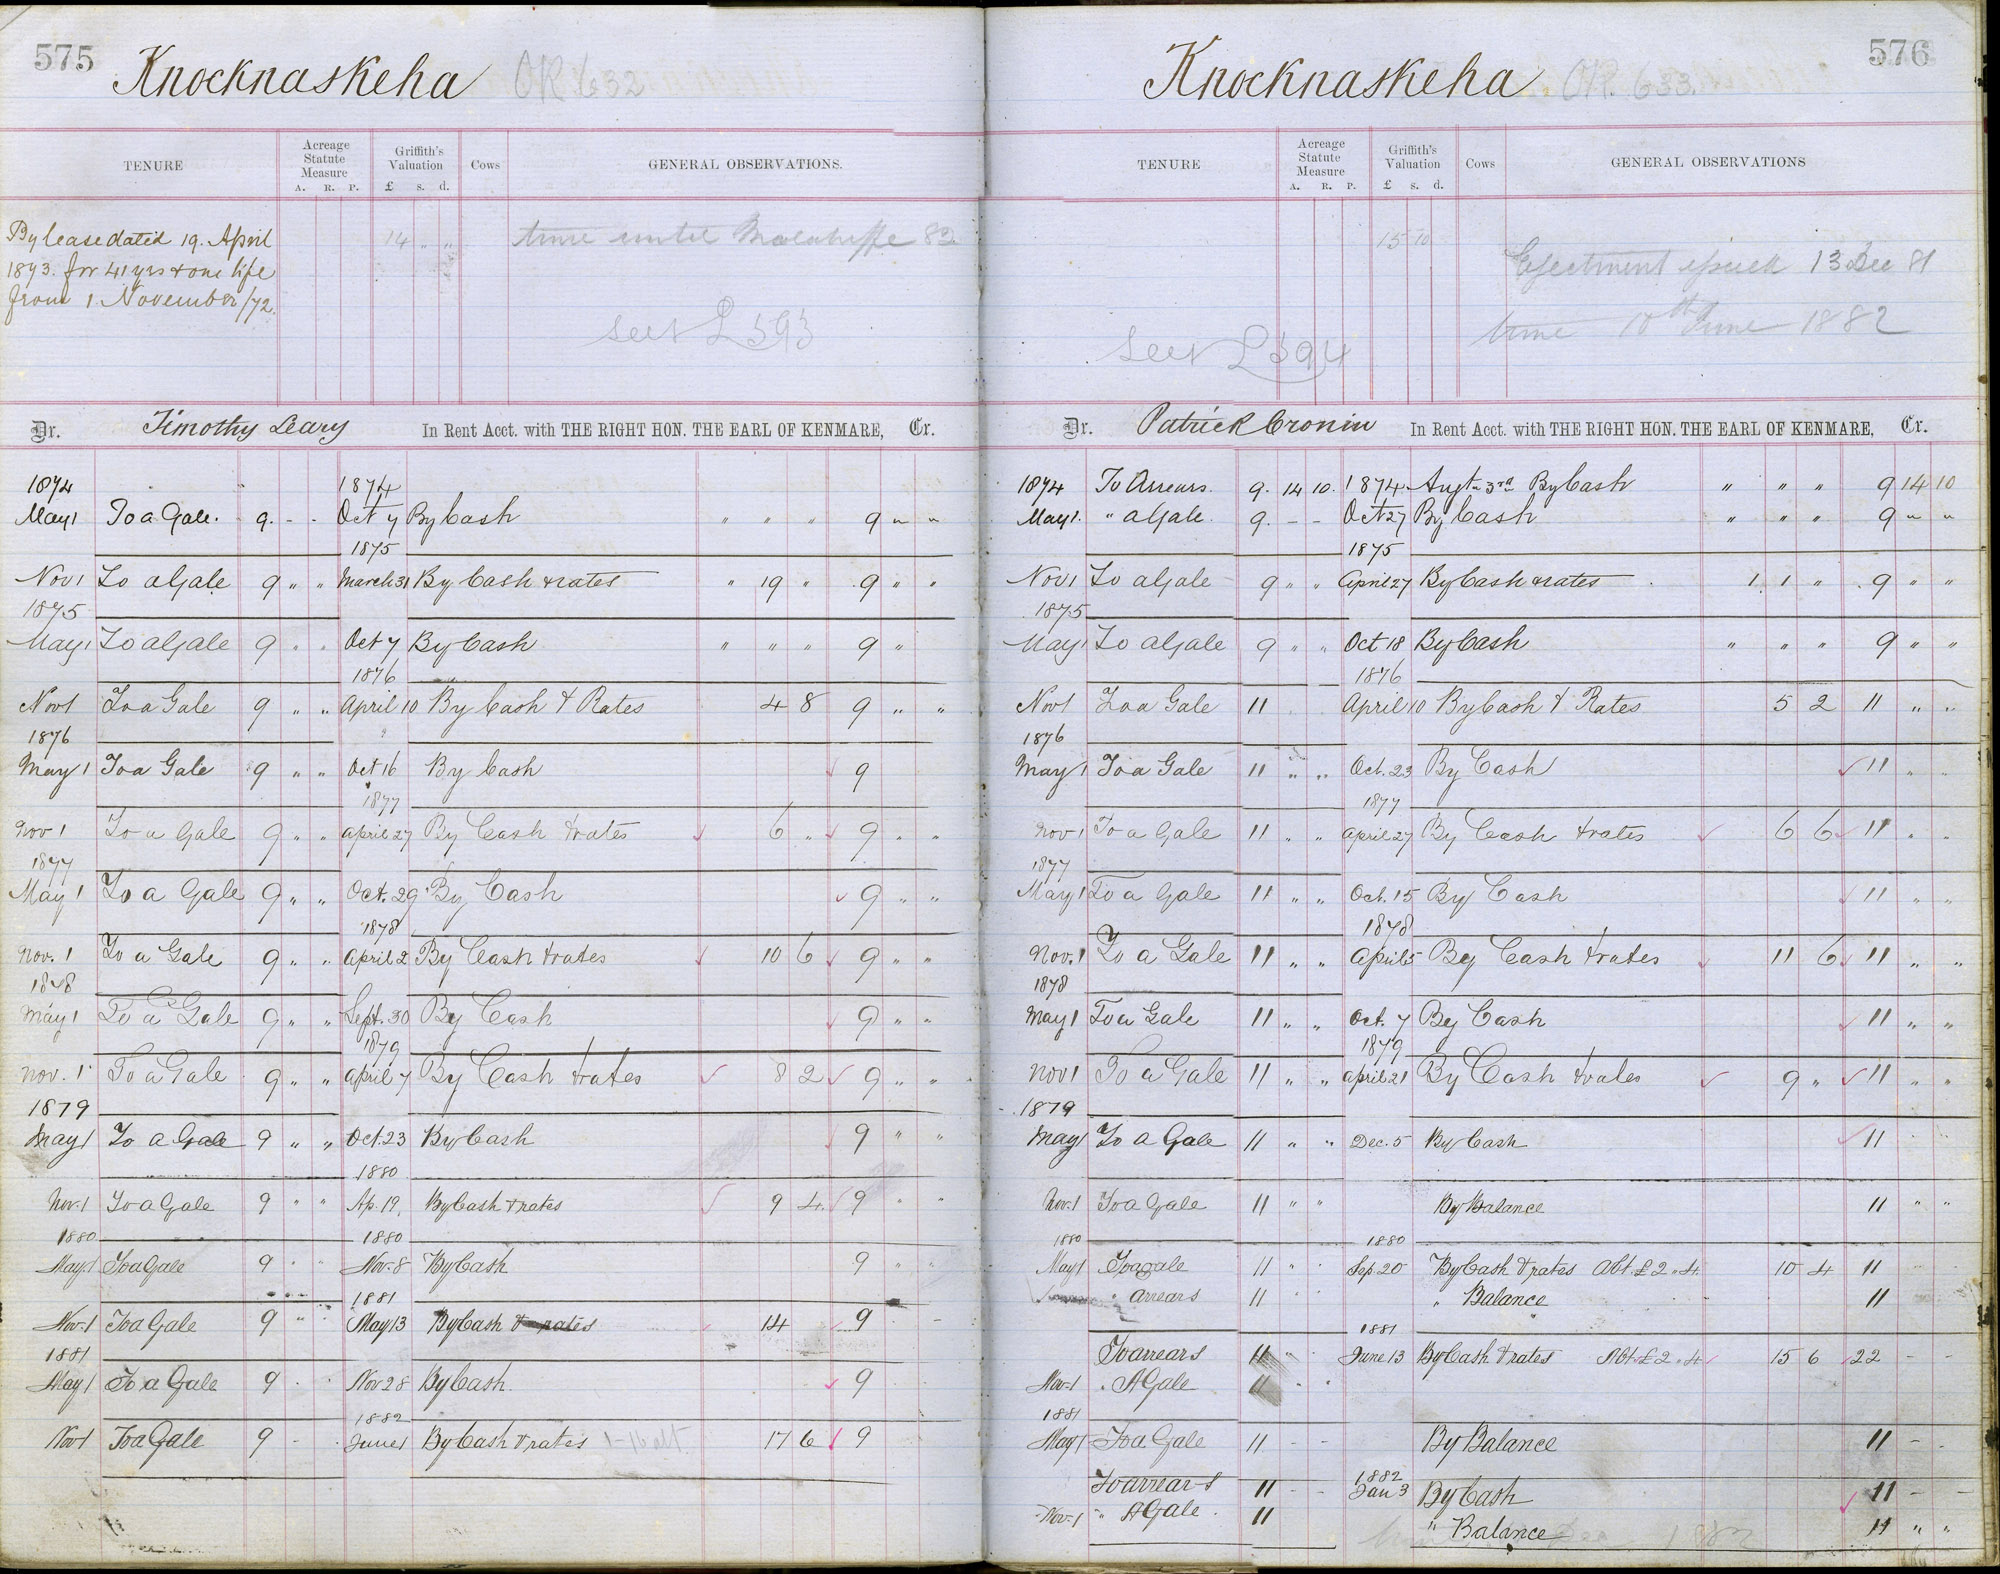 575
Knocknaskeha OR 632
TENURE
Acreage Statute Measure
A. R. P.
Griffith's Valuation
£ s. d.
Cows
GENERAL OBSERVATIONS.
By lease dated 19. April
1873. for 41 yrs & one life
from 1 November /72.
14 " "
time until
see L 593
Dr. Timothy Leary In Rent Acct. with THE RIGHT HON. THE EARL OF KENMARE, Cr.
1874 1874
May 1 To a Gale. 9. - - Oct 7 By Cash " " " 9 " "
1875
Nov 1 To a Gale 9 " " March 31 By Cash & rates " 19 " 9 " "
1875
May 1 To a Gale 9 " " Oct 7 By Cash " " " 9 "
1876
Nov 1 To a Gale 9 " " April 10 By Cash & Rates 4 8 9 " "
1876
May 1 To a Gale 9 " " Oct 16 By Cash 9
1877
Nov 1 To a Gale 9 " " April 27 By Cash & rates 6 " 9 " "
1877
May 1 To a Gale 9 " " Oct. 29 By Cash 9 " "
1878
Nov. 1 To a Gale 9 " " April 2 By Cash & rates 10 6 9 " "
1878
May 1 To a Gale 9 " " Sept. 30 By Cash 9 " "
1879
Nov. 1 To a Gale 9 " " April 7 By Cash & rates 8 2 9 " "
1879
May 1 To a Gale 9 " " Oct. 23 By Cash 9 " "
1880
Nov. 1 To a Gale 9 " " Ap. 19, By Cash & rates 9 4 9 " "
1880 1880
May 1 To a Gale 9 " " Nov. 8 By Cash 9 " "
1881
Nov. 1 To a Gale 9 " " May 13 By Cash & rates 14 9 -
1881
May 1 To a Gale 9 Nov 28 By Cash. 9
1882
Nov 1 To a Gale 9 - June 1 By Cash & rates 17 6 9
576
Knocknaskeha OR. 633.
TENURE
Acreage Statute Measure
A. R. P.
Griffith's Valuation
£ s. d.
Cows
GENERAL OBSERVATIONS
15 10
Ejectment issued 13 Dec 81
time 10th June 1882
see L 594
Dr. Patrick Cronin In Rent Acct. with THE RIGHT HON. THE EARL OF KENMARE, Cr.
1874 To Arrears. 9. 14 10. 1874 Augt. 3rd By Cash " " " 9 14 10
May 1. " a Gale. 9. - - Oct 27 By Cash " " " 9 " "
1875
Nov 1 To a Gale 9 " " April 27 By Cash & rates 1. 1 " 9 " "
1875
May 1 To a Gale 9 " " Oct 18 By Cash " " " 9 " "
1876
Nov 1 To a Gale 11 April 10 By Cash & Rates 5 2 11 " "
1876
May 1 To a Gale 11 " " Oct. 23 By Cash 11 " "
1877
Nov 1 To a Gale 11 " " April 27 By Cash & rates 6 6 11 " "
1877
May 1 To a Gale 11 " " Oct. 15 By Cash 11 " "
1878
Nov. 1 To a Gale 11 " " April 5 By Cash & rates 11 6 11 " "
1878
May 1 To a Gale 11 " " Oct. 7 By Cash 11 " "
1879
Nov 1 To a Gale 11 " " April 21 By Cash & rates 9 " 11 " "
1879
May 1 To a Gale 11 " " Dec. 5 By Cash 11
Nov. 1 To a Gale 11 " " By Balance 11 " "
1880 1880
May 1 To a gale 11 " " Sep. 20 By Cash & rates Abt. £2 " 4 10 4 11
" arrears 11 " " " Balance 11
1881
To arrears 11 " " June 13 By Cash & rates Abt. £2 " 4 15 6 22 - -
Nov. 1 " A Gale 11
1881
May 1 To a Gale 11 - - By Balance 11 - -
1882
To arrears 11 - - Jan 3 By Cash 11 - -
Nov. 1 " A Gale. 11 " Balance 11 " "